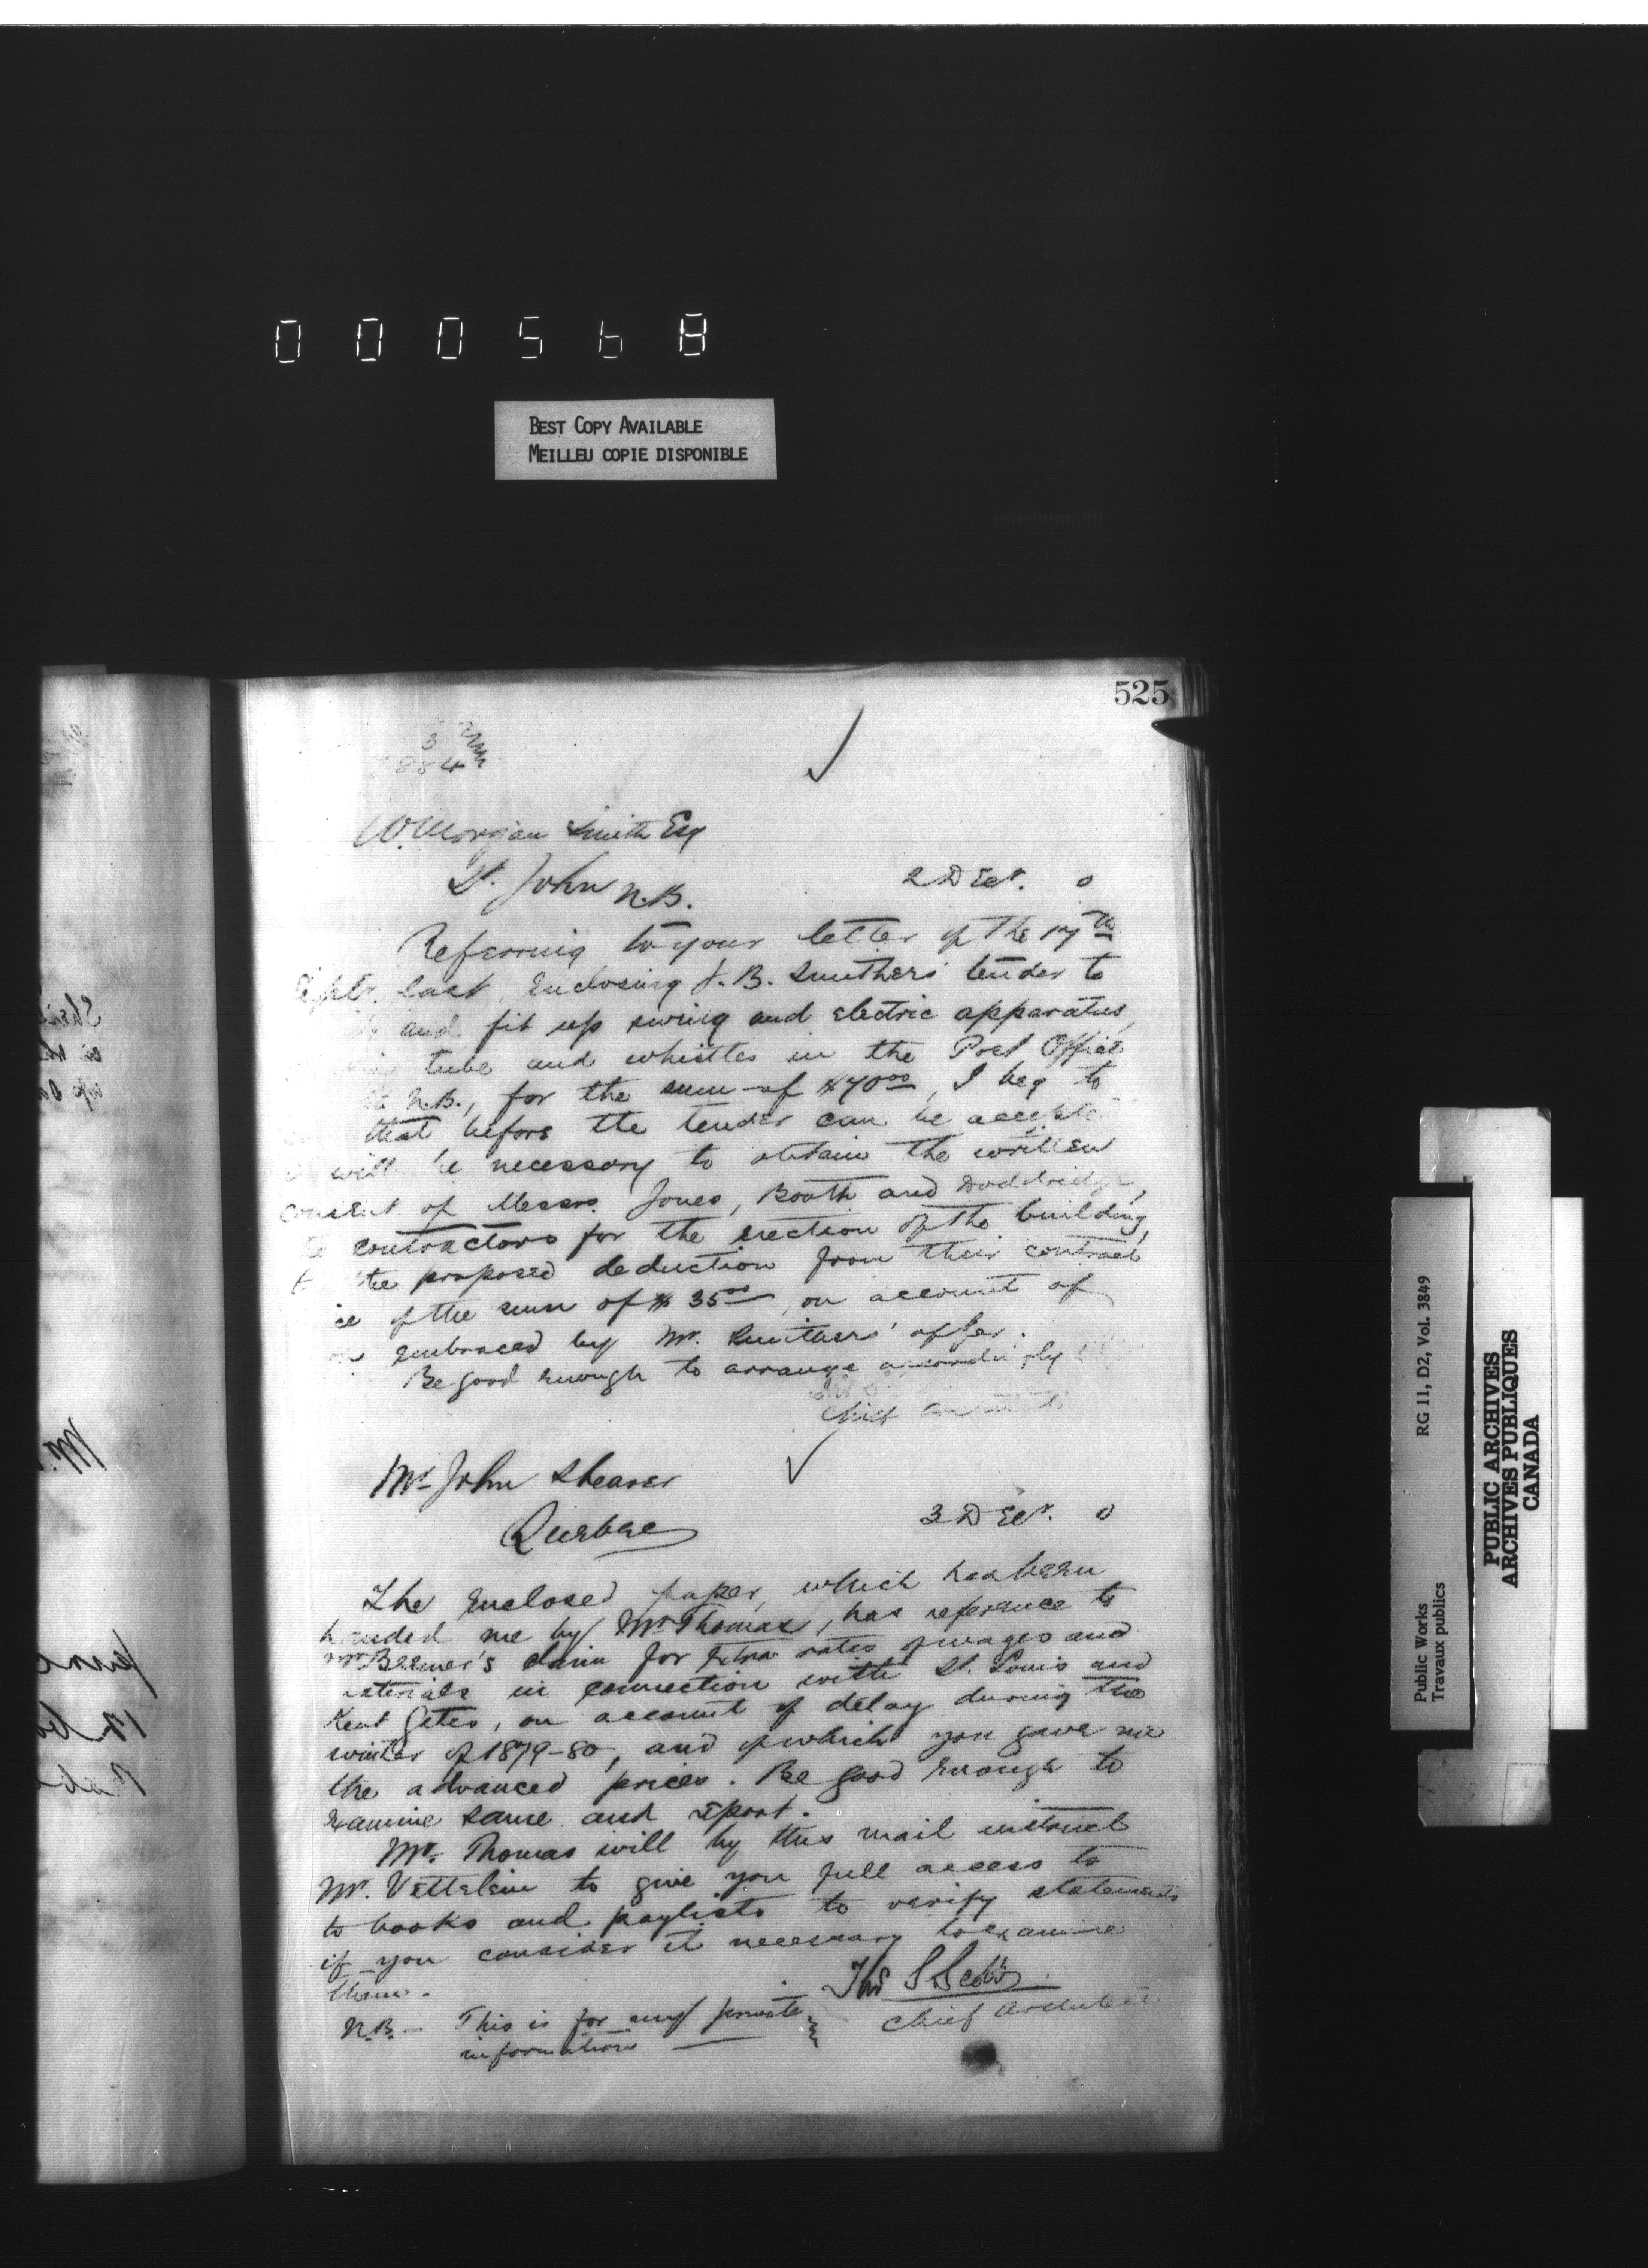 000568
BEST COPY AVAILABLE
MEILLEU COPIE DISPONIBLE
525
3
884
W. Morgan Smith Esq
St. John N.B.
2 Decr. 0
Referring to your letter of the 17th
Septr. last, enclosing J. B. Smithers' tender to
and fit up wiring and electric apparatus,
tube and whistles in the Post Office
N.B., for the sum of $70.00, I beg to
that before the tender can be accepted
will be necessary to obtain the written
consent of Messrs. Jones, Booth and Doddridge,
the contractors for the erection of the building,
to the proposed deduction from their contract
of the sum of $35.00, on account of
embraced by Mr. Smithers' offer.
Be good enough to arrange accordingly
Chief Architect
Mr. John Shearer
Quebec
3 Decr. 0
The enclosed paper, which has been
handed me by Mr. Thomas, has reference to
Mr Beemer's claim for Extra rates of wages and
materials in connection with St. Louis and
Kent Gates, on account of delay during the
winter of 1879-80, and of which you gave me
the advanced prices. Be good enough to
examine same and report.
Mr. Thomas will by this mail instruct
Mr. Vettelein to give you full access to
to books and paylists to verify statements
if you consider it necessary to examine
them.
Thos S Scott
Chief Architect
N.B. - This is for my private
information
Public Works
Travaux publics
RG 11, D2, Vol. 3849
PUBLIC ARCHIVES
ARCHIVES PUBLIQUES
CANADA